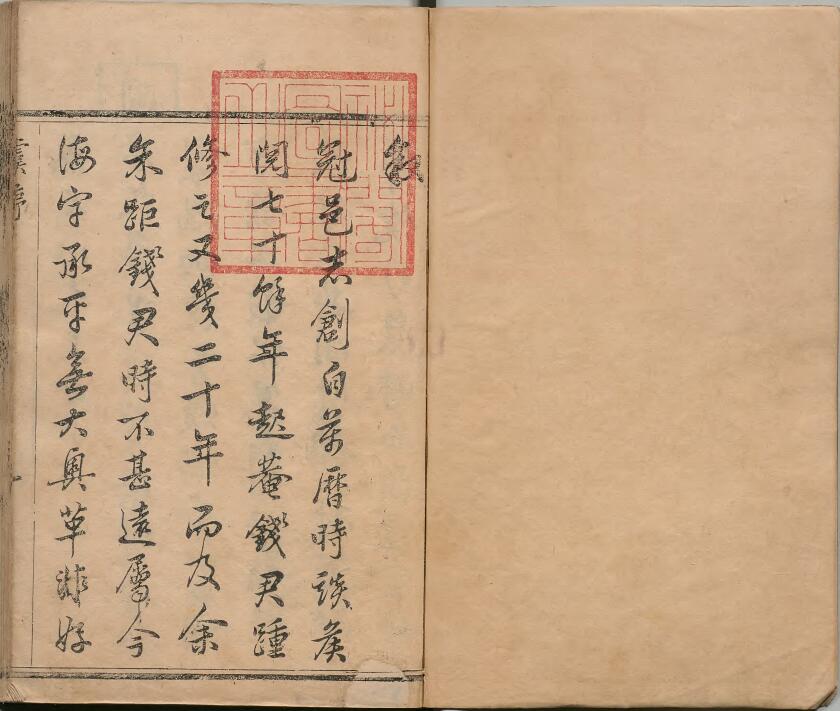 敘
冠邑志創自萬曆時談矦
閱七十餘年起菴錢君踵
修之又幾二十年而及余
余距錢君時不甚遠屬今
海宇承平無大興革非好
序